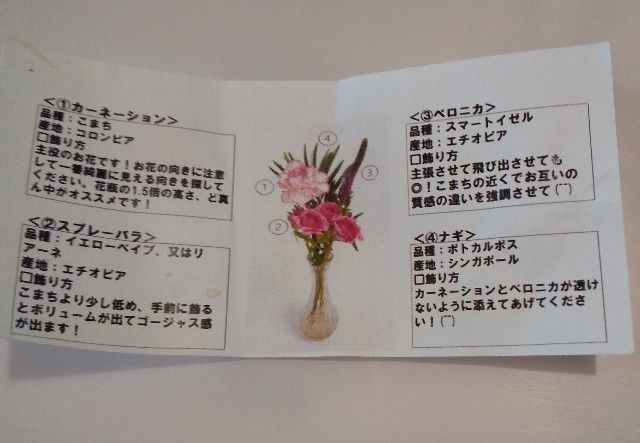 <①カーネーション>
品種：こまち
産地：コロンビア
□飾り方
主役のお花です！お花の向きに注意
して一番綺麗に見える向きを探して
ください。花瓶の1.5倍の高さ、ど真
ん中がオススメです！
<②スプレーバラ>
品種：イエローベイブ、又はリ
アーネ
産地：エチオピア
□飾り方
こまちより少し低め、手前に飾る
とボリュームが出てゴージャス感
が出ます！
④
③
①
②
<③ベロニカ>
品種：スマートイゼル
産地：エチオピア
□飾り方
主張させて飛び出させても
◎！こまちの近くでお互いの
質感の違いを強調させて(⌒)
<④ナギ>
品種：ポトカルポス
産地：シンガポール
□飾り方
カーネーションとベロニカが透け
ないように添えてあげてくださ
い！(⌒)